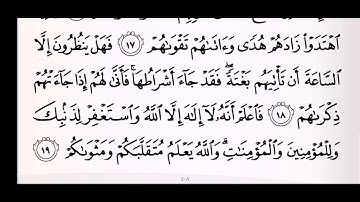 ٱهْتَدَوْا۟ زَادَهُمْ هُدًى وَءَاتَىٰهُمْ تَقْوَىٰهُمْ ﴿١٧﴾ فَهَلْ يَنظُرُونَ إِلَّا
ٱلسَّاعَةَ أَن تَأْتِيَهُم بَغْتَةً ۖ فَقَدْ جَآءَ أَشْرَاطُهَا ۚ فَأَنَّىٰ لَهُمْ إِذَا جَآءَتْهُمْ
ذِكْرَىٰهُمْ ﴿١٨﴾ فَٱعْلَمْ أَنَّهُۥ لَآ إِلَٰهَ إِلَّا ٱللَّهُ وَٱسْتَغْفِرْ لِذَنۢبِكَ
وَلِلْمُؤْمِنِينَ وَٱلْمُؤْمِنَٰتِ ۗ وَٱللَّهُ يَعْلَمُ مُتَقَلَّبَكُمْ وَمَثْوَىٰكُمْ ﴿١٩﴾
٥٠٨